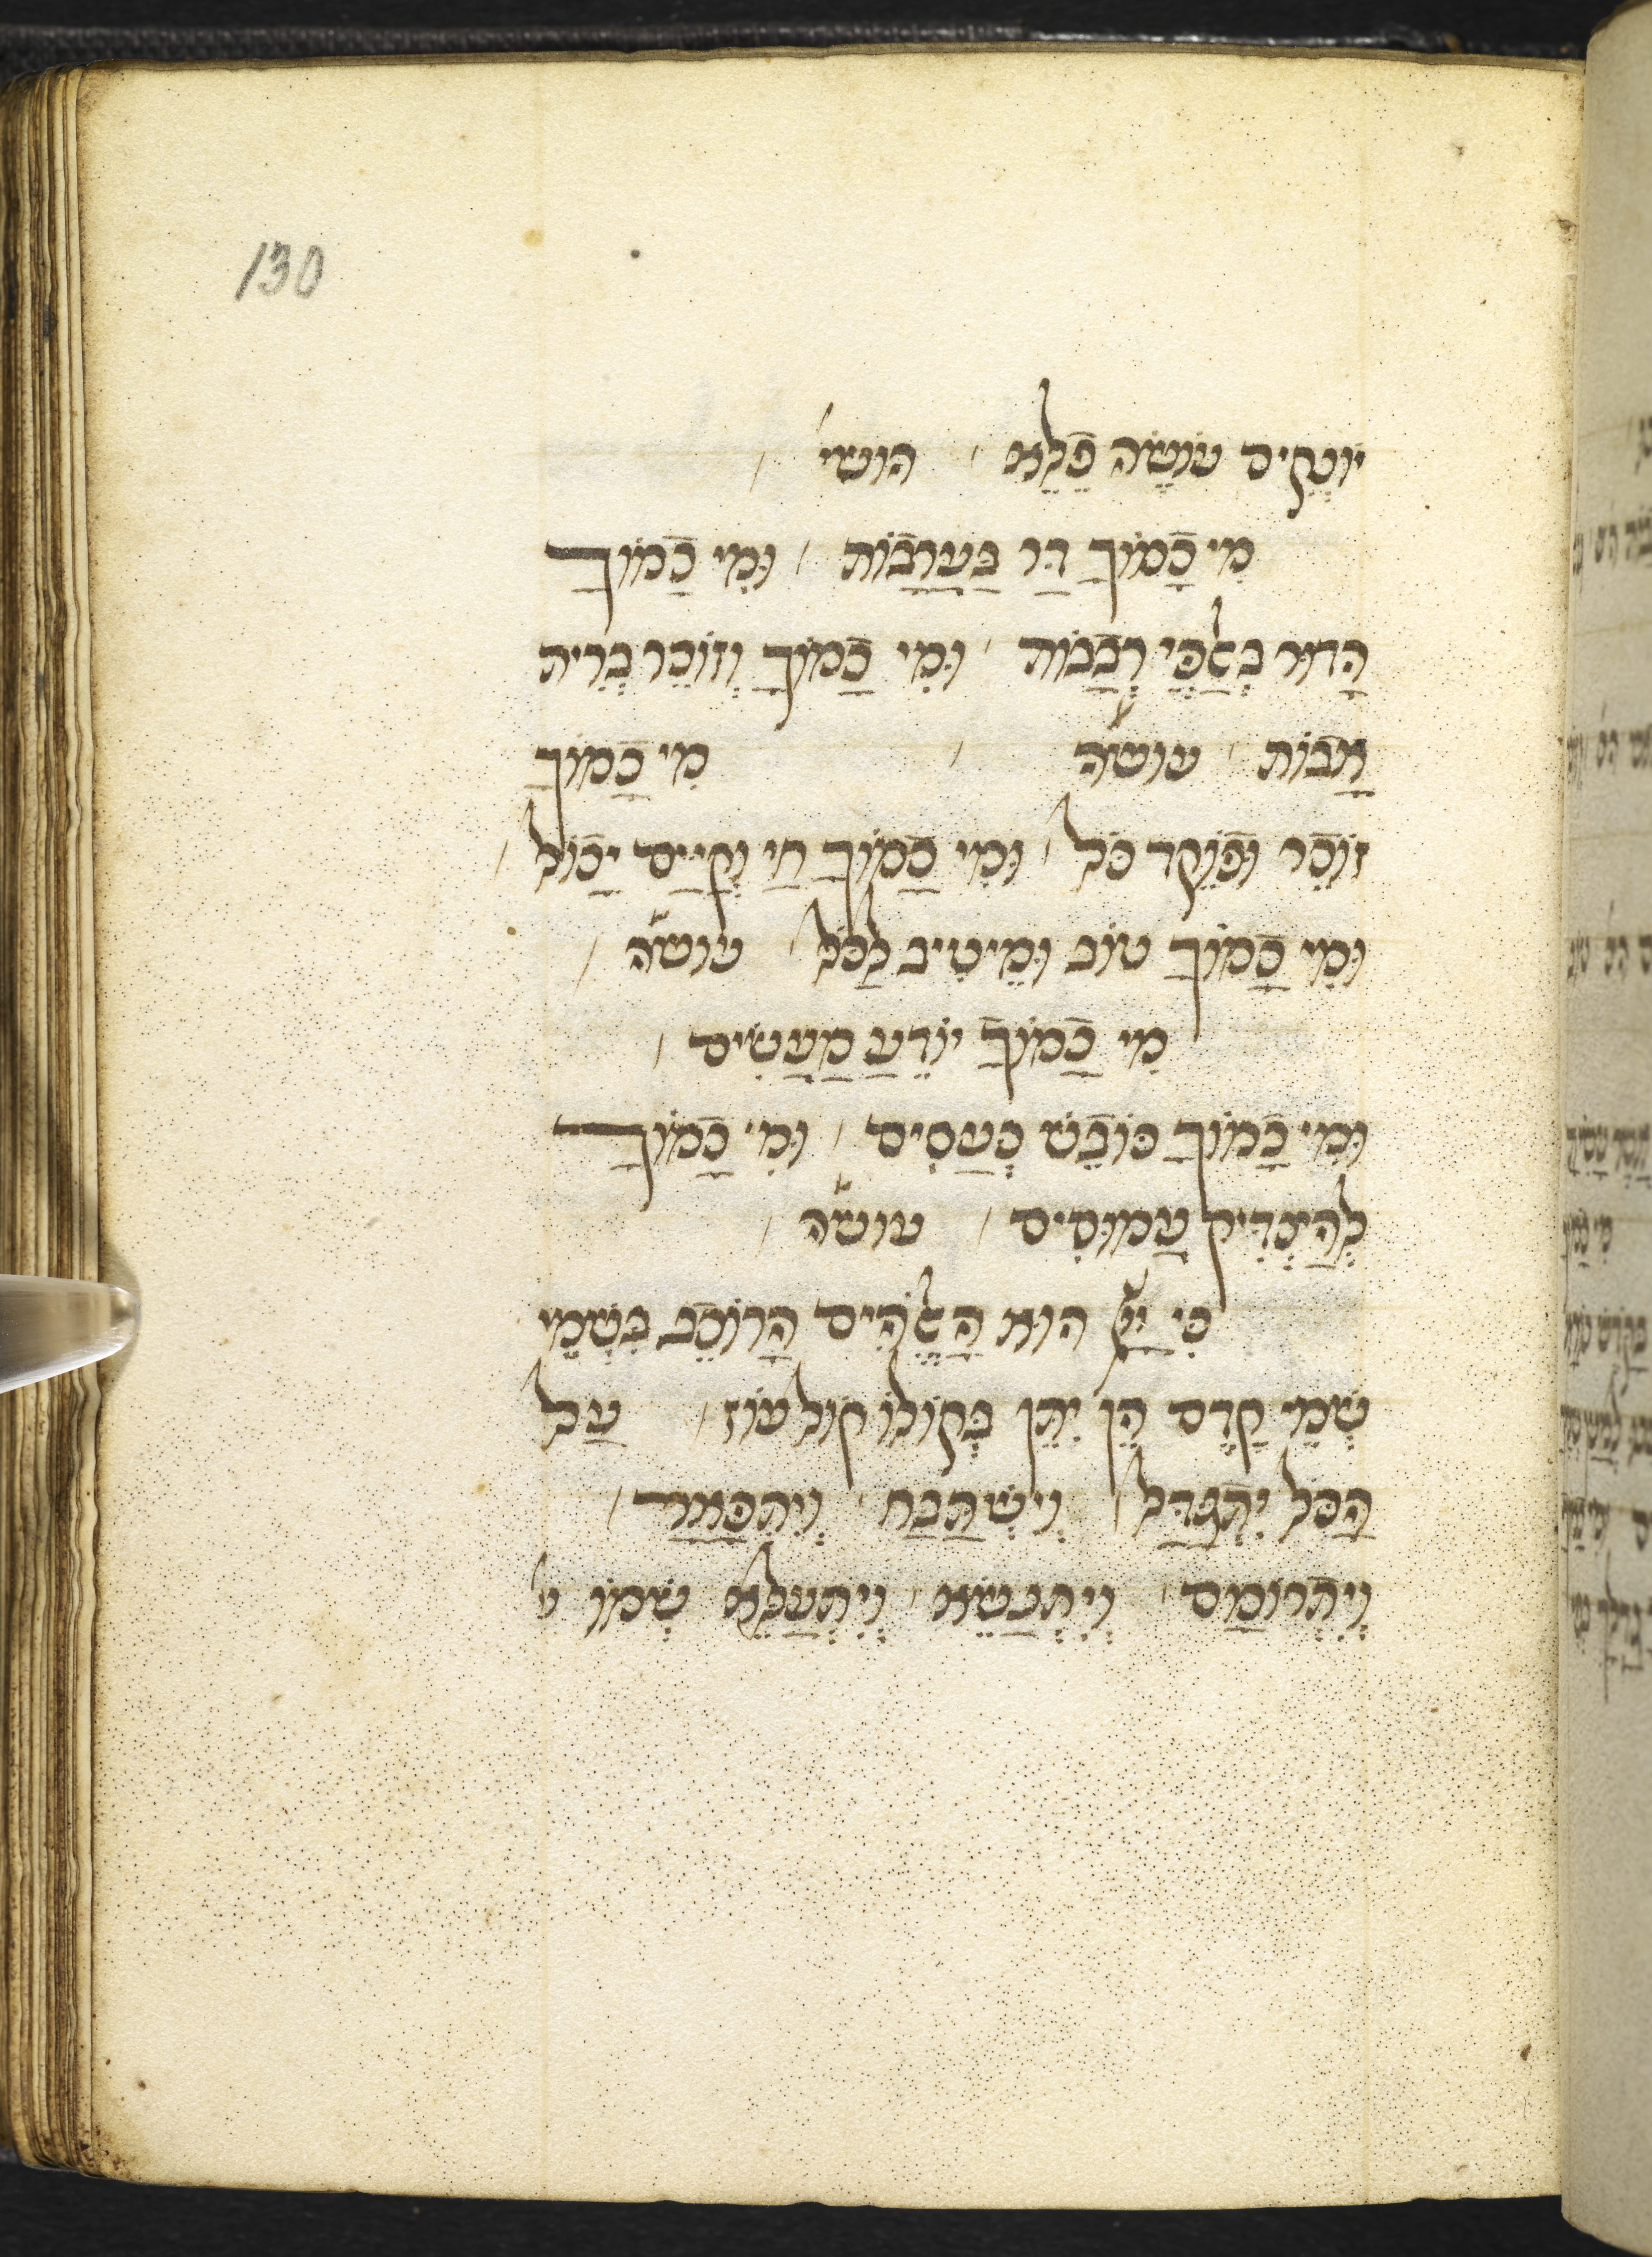 עוֹשֶׂה פֶלֶא / הושי /
מִי כָמוֹךָ דַר בַּעֲרָבוֹת / וּמִי כָמוֹךָ
הָדוּר בְּאַלְפֵי רְבָבוֹת / וּמִי כָמוֹךָ וְזוֹכֵר בְּרִית
אָבוֹת / עושה / מִי כָמוֹךָ
זוֹכֵר וּפוֹקֵד כֹּל / וּמִי כָמוֹךָ חַי וְקַיָּים יָכוֹל /
וּמִי כָמוֹךָ טוֹב וּמֵיטִיב לַכֹּל / עושה /
מִי כָמוֹךָ יוֹדֵעַ מַעֲשִׂים /
וּמִי כָמוֹךָ כּוֹבֵשׁ כְּעָסִים / וּמִי כָמוֹךָ
לְהַצְדִּיק עֲמוּסִים / עושה /
כִּי יְיָ הוּא הָאֱלֹהִים הָרוֹכֵב בִּשְׁמֵי
שְׁמֵי קֶדֶם הֵן יִתֵּן בְּקוֹלוֹ קוֹל עוֹז / עַל
הַכֹּל יִתְגַּדַּל / וְיִשְׁתַּבַּח / וְיִתְפָּאַר /
וְיִתְרוֹמַם / וְיִתְנַשֵּׂא / וְיִתְעַלֵּא שְׁמוֹ
130